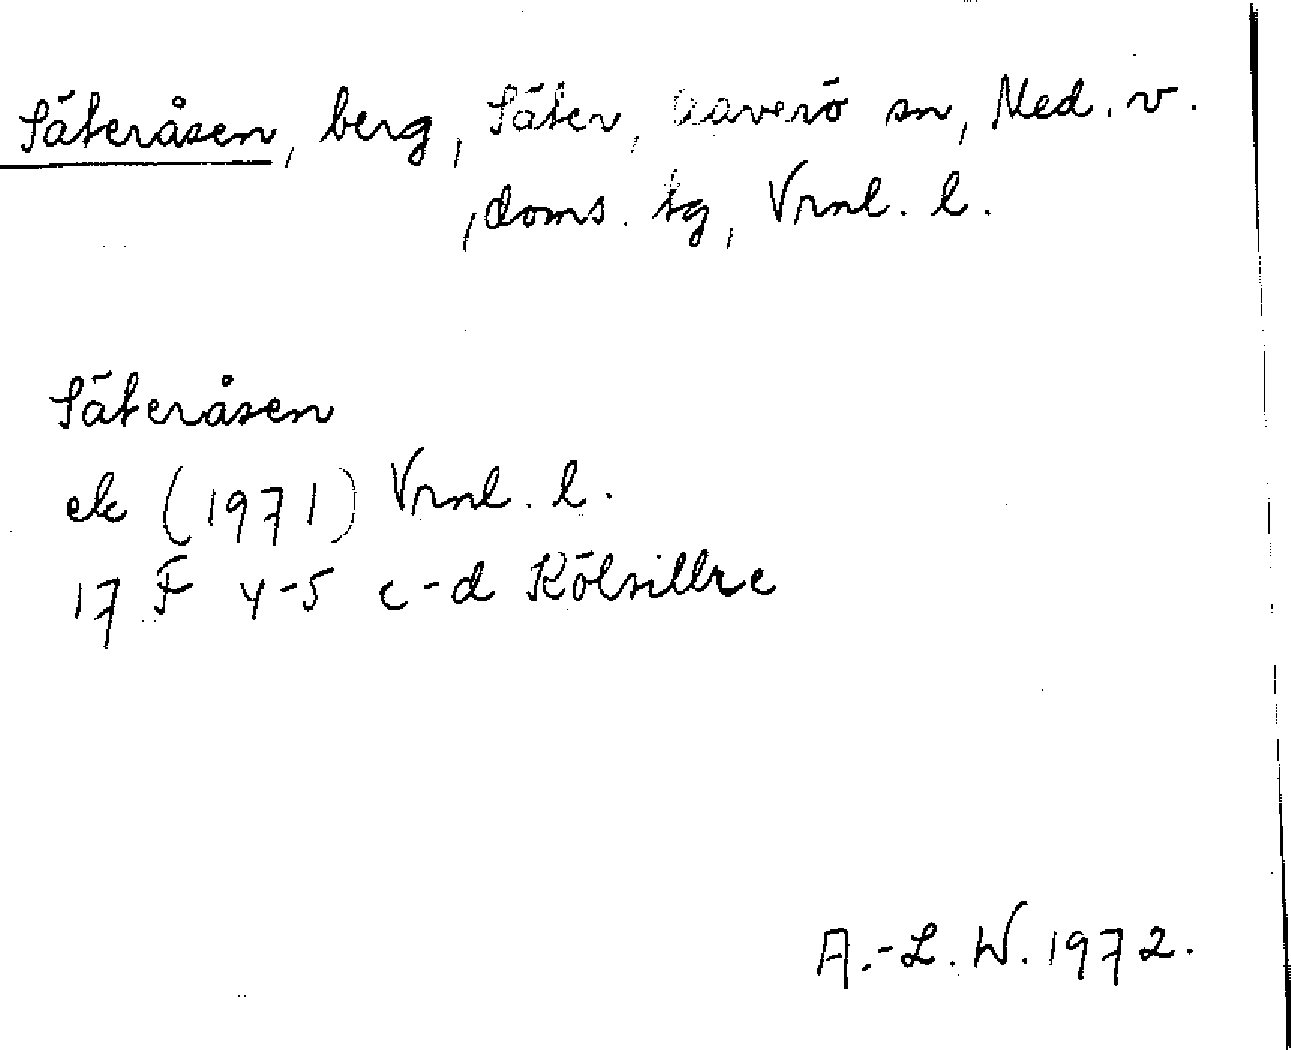 Säteråsen, berg, Säter, Haverö sn, Med. v.
, doms. tg, Vrnl. l.
Säteråsen
ek (1971) Vrnl. l.
17 F 4-5 c-d Kölsillre
A.-L. W. 1972.